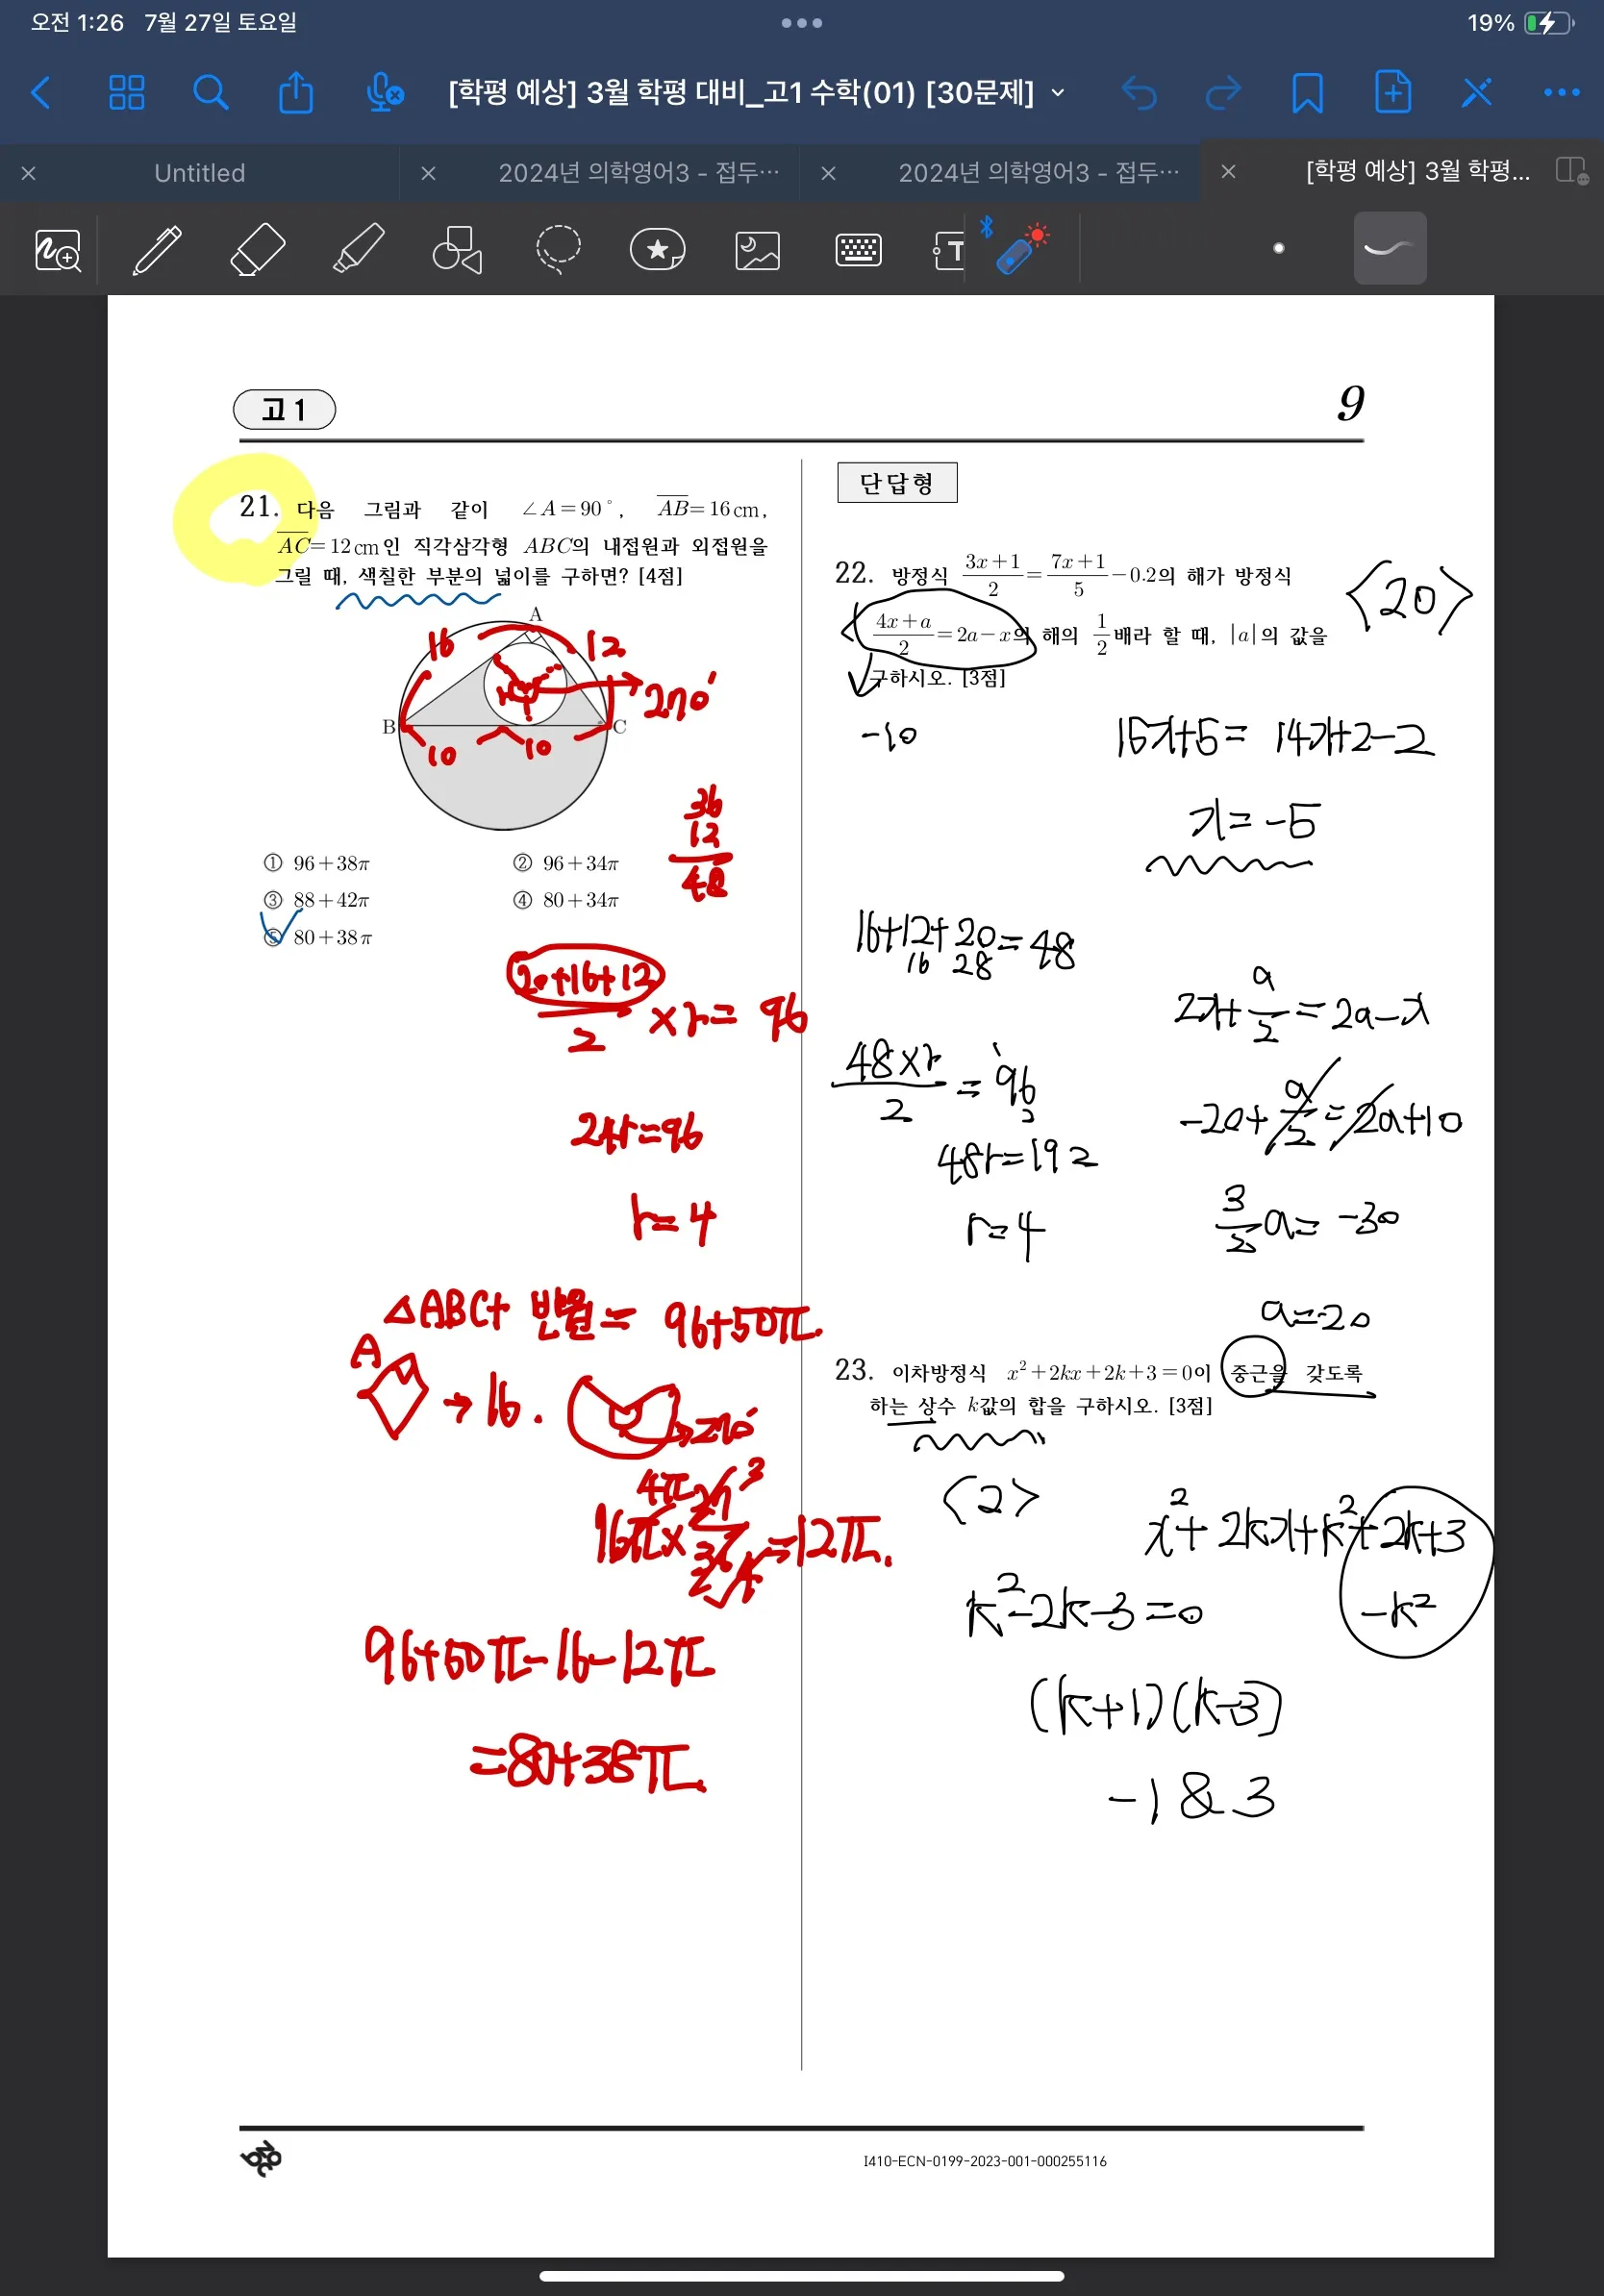 오전 1:26 7월 27일 토요일
19%
[학평 예상] 3월 학평 대비_고1 수학(01) [30문제]
Untitled
2024년 의학영어3 - 접두…
2024년 의학영어3 - 접두…
[학평 예상] 3월 학평...
고1
9
21. 다음 그림과 같이 ∠A=90°, AB=16cm,
AC=12cm인 직각삼각형 ABC의 내접원과 외접원을
그릴 때, 색칠한 부분의 넓이를 구하면? [4점]
A
16
12
270°
B
C
10
10
① 96+38π
② 96+34π
③ 88+42π
④ 80+34π
⑤ 80+38π
36
12
48
20+16+12/2 × r = 96
24r=96
r=4
△ABC+ 반원 = 96+50π.
A → 16.
270°
=12π.
96+50π-16-12π
=80+38π.
단답형
22. 방정식 3x+1/2 = 7x+1/5 - 0.2의 해가 방정식
4x+a/2 = 2a-x의 해의 1/2배라 할 때, |a|의 값을
구하시오. [3점]
<20>
-10
15x+5= 14x+2-2
x= -5
16+12+20=48
16 28
2x+a/2=2a-x
48×r/2 = 96
2
-20+a/2=2a+10
48r=192
3/2a= -30
r=4
a=-20
23. 이차방정식 x²+2kx+2k+3=0이 중근을 갖도록
하는 상수 k값의 합을 구하시오. [3점]
<2>
x²+2kx+k²+2k+3
-k²
k²-2k-3=0
(k+1)(k-3)
-1 & 3
I410-ECN-0199-2023-001-000255116